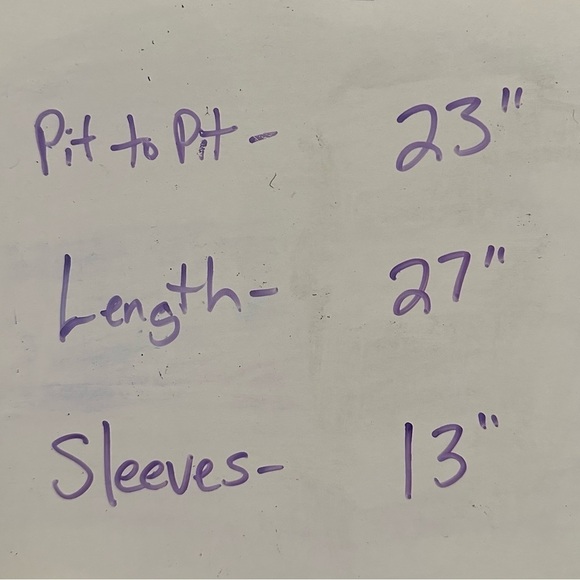 Pit to Pit - 23"
Length - 27"
Sleeves - 13"